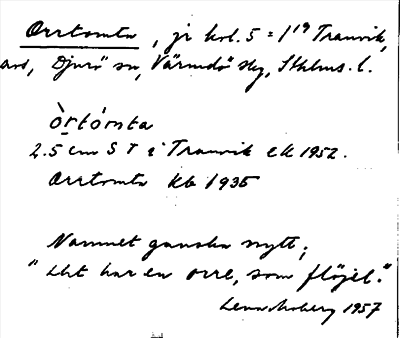 Orrtomta, jr kol. 5 = 1/19 Tranvik,
avs, Djurö sn, Värmdö skg, Sthlms. l.
òrtómta
2.5 cm S T i Tranvik ek 1952.
Orrtomta kb 1935
Namnet ganska nytt;
"Det har en orre, som flöjel."
Lena Moberg 1957